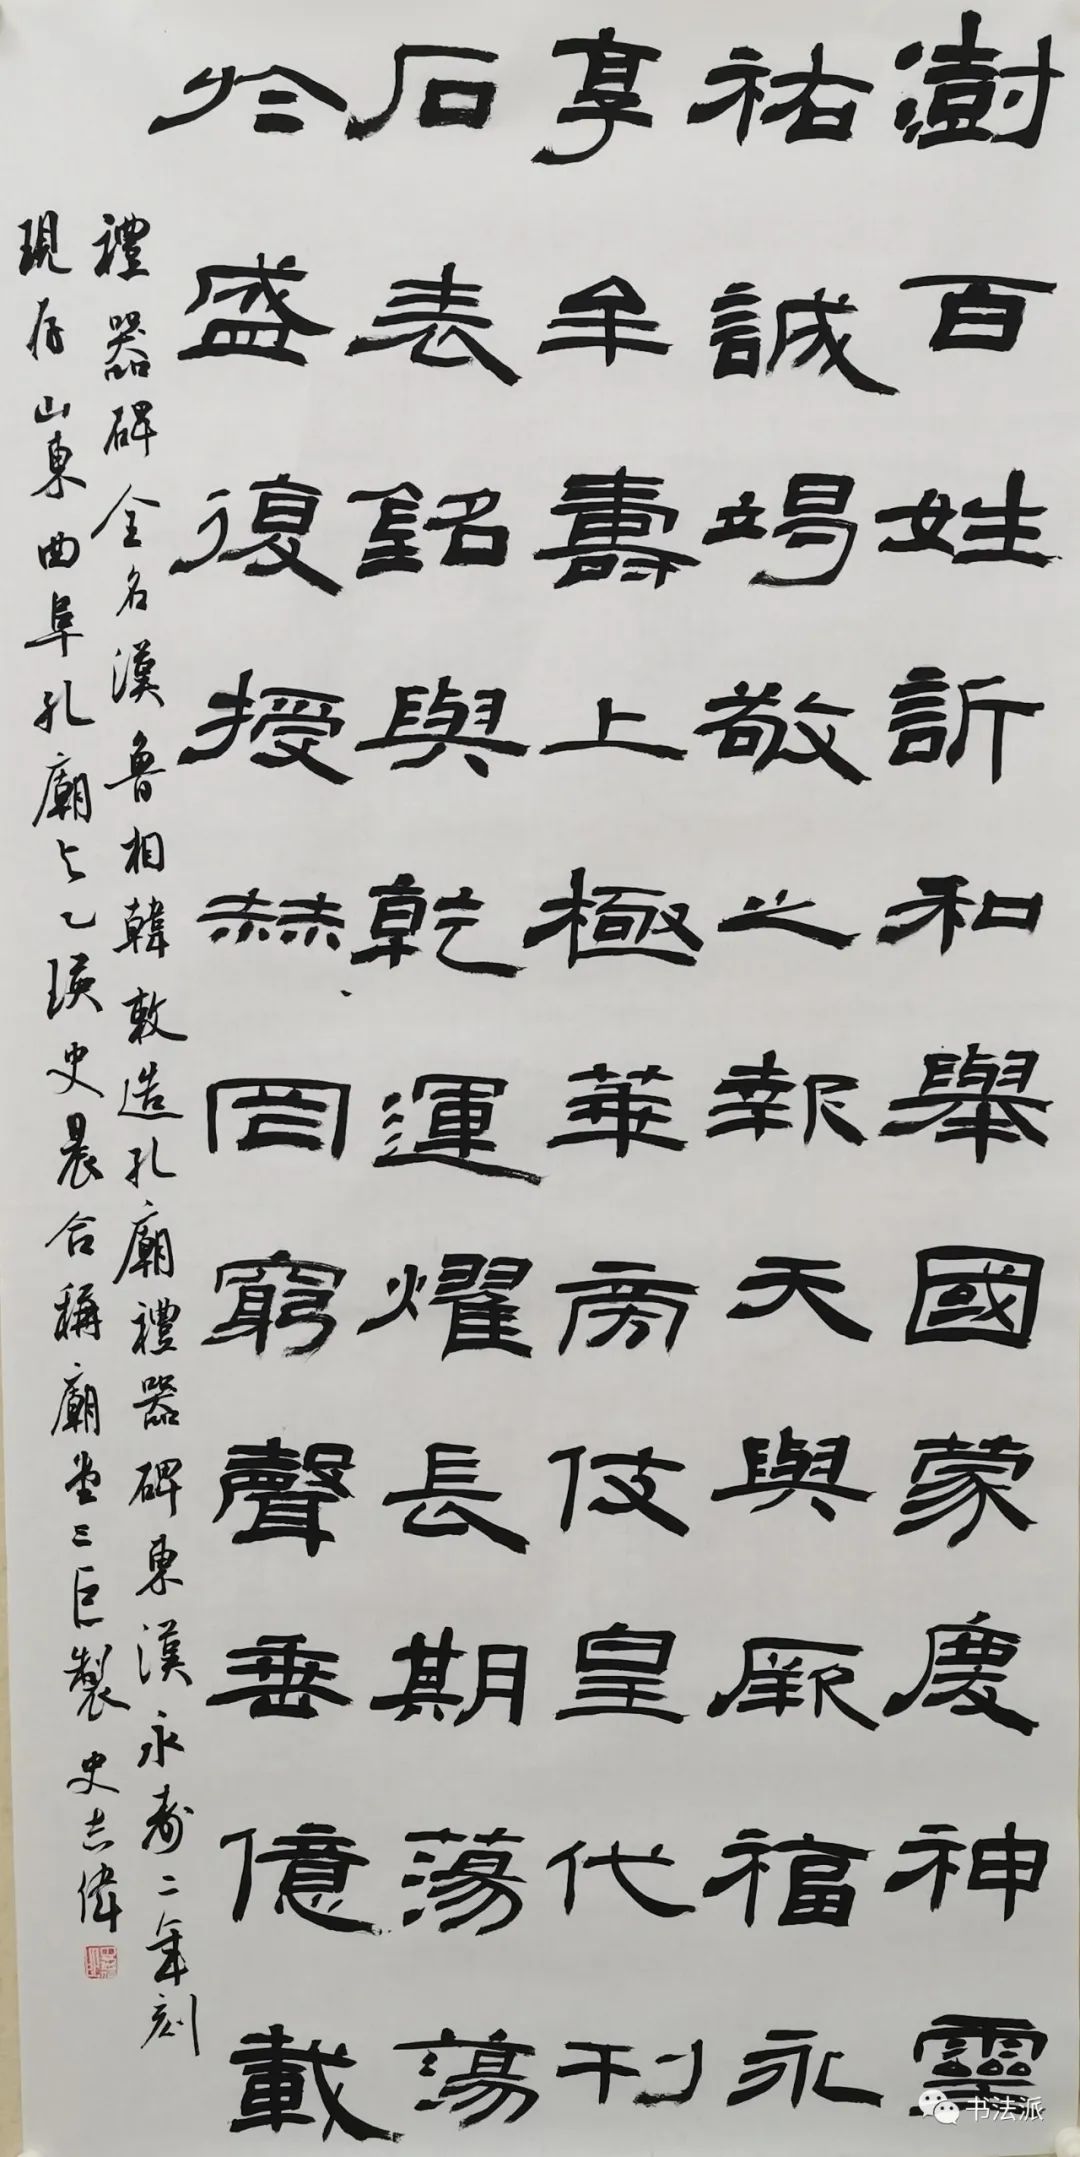 澍百姓訢和舉國蒙慶神靈
祐誠竭敬之報天與厥福永
享牟壽上極華旁伎皇代刊
石表銘與乾運耀長期蕩蕩
於盛復授赫罔窮聲垂億載
禮器碑全名漢魯相韓敕造孔廟禮器碑東漢永壽二年刻
現存山東曲阜孔廟与乙瑛史晨合稱廟堂三巨製 史志偉
书法派